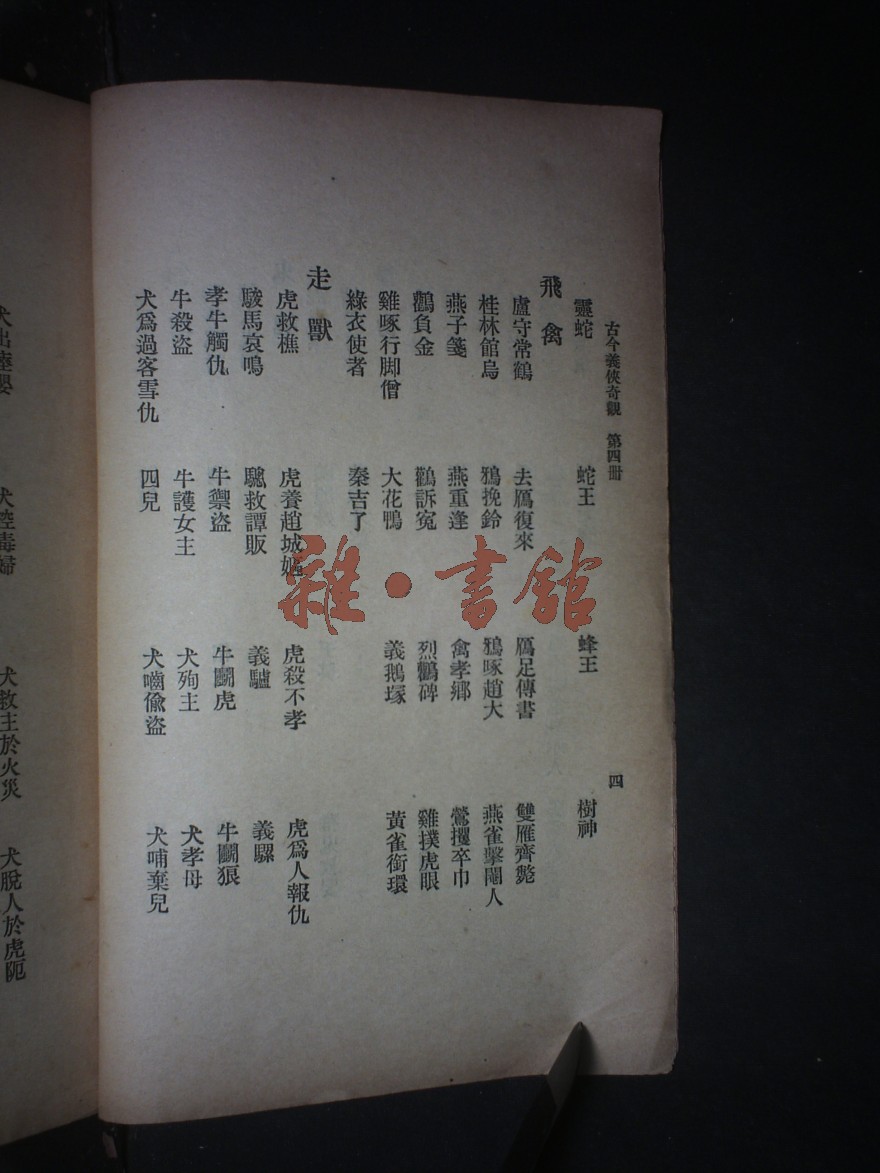 古今義俠奇觀　第四冊　四
靈蛇　蛇王　蜂王　樹神
飛禽
盧守常鶴　去鴈復來　鴈足傳書　雙雁齊斃
桂林館烏　鴉挽鈴　鴉啄趙大　燕雀擊鬮人
燕子箋　燕重逢　禽孝鄉　鶯攫卒巾
鸛負金　鸛訴冤　烈鸛碑　雞撲虎眼
雞啄行脚僧　大花鴨　義鵝塚　黃雀銜環
綠衣使者　秦吉了
走獸
虎救樵　虎養趙城嫗　虎殺不孝　虎爲人報仇
駿馬哀鳴　驄救譚販　義驢　義騾
孝牛觸仇　牛禦盜　牛鬭虎　牛鬭狼
牛殺盜　牛護女主　犬殉主　犬孝母
犬爲過客雪仇　四兒　犬嚙偸盜　犬哺棄兒
犬救主於火災　犬脫人於虎阨
雜·書館